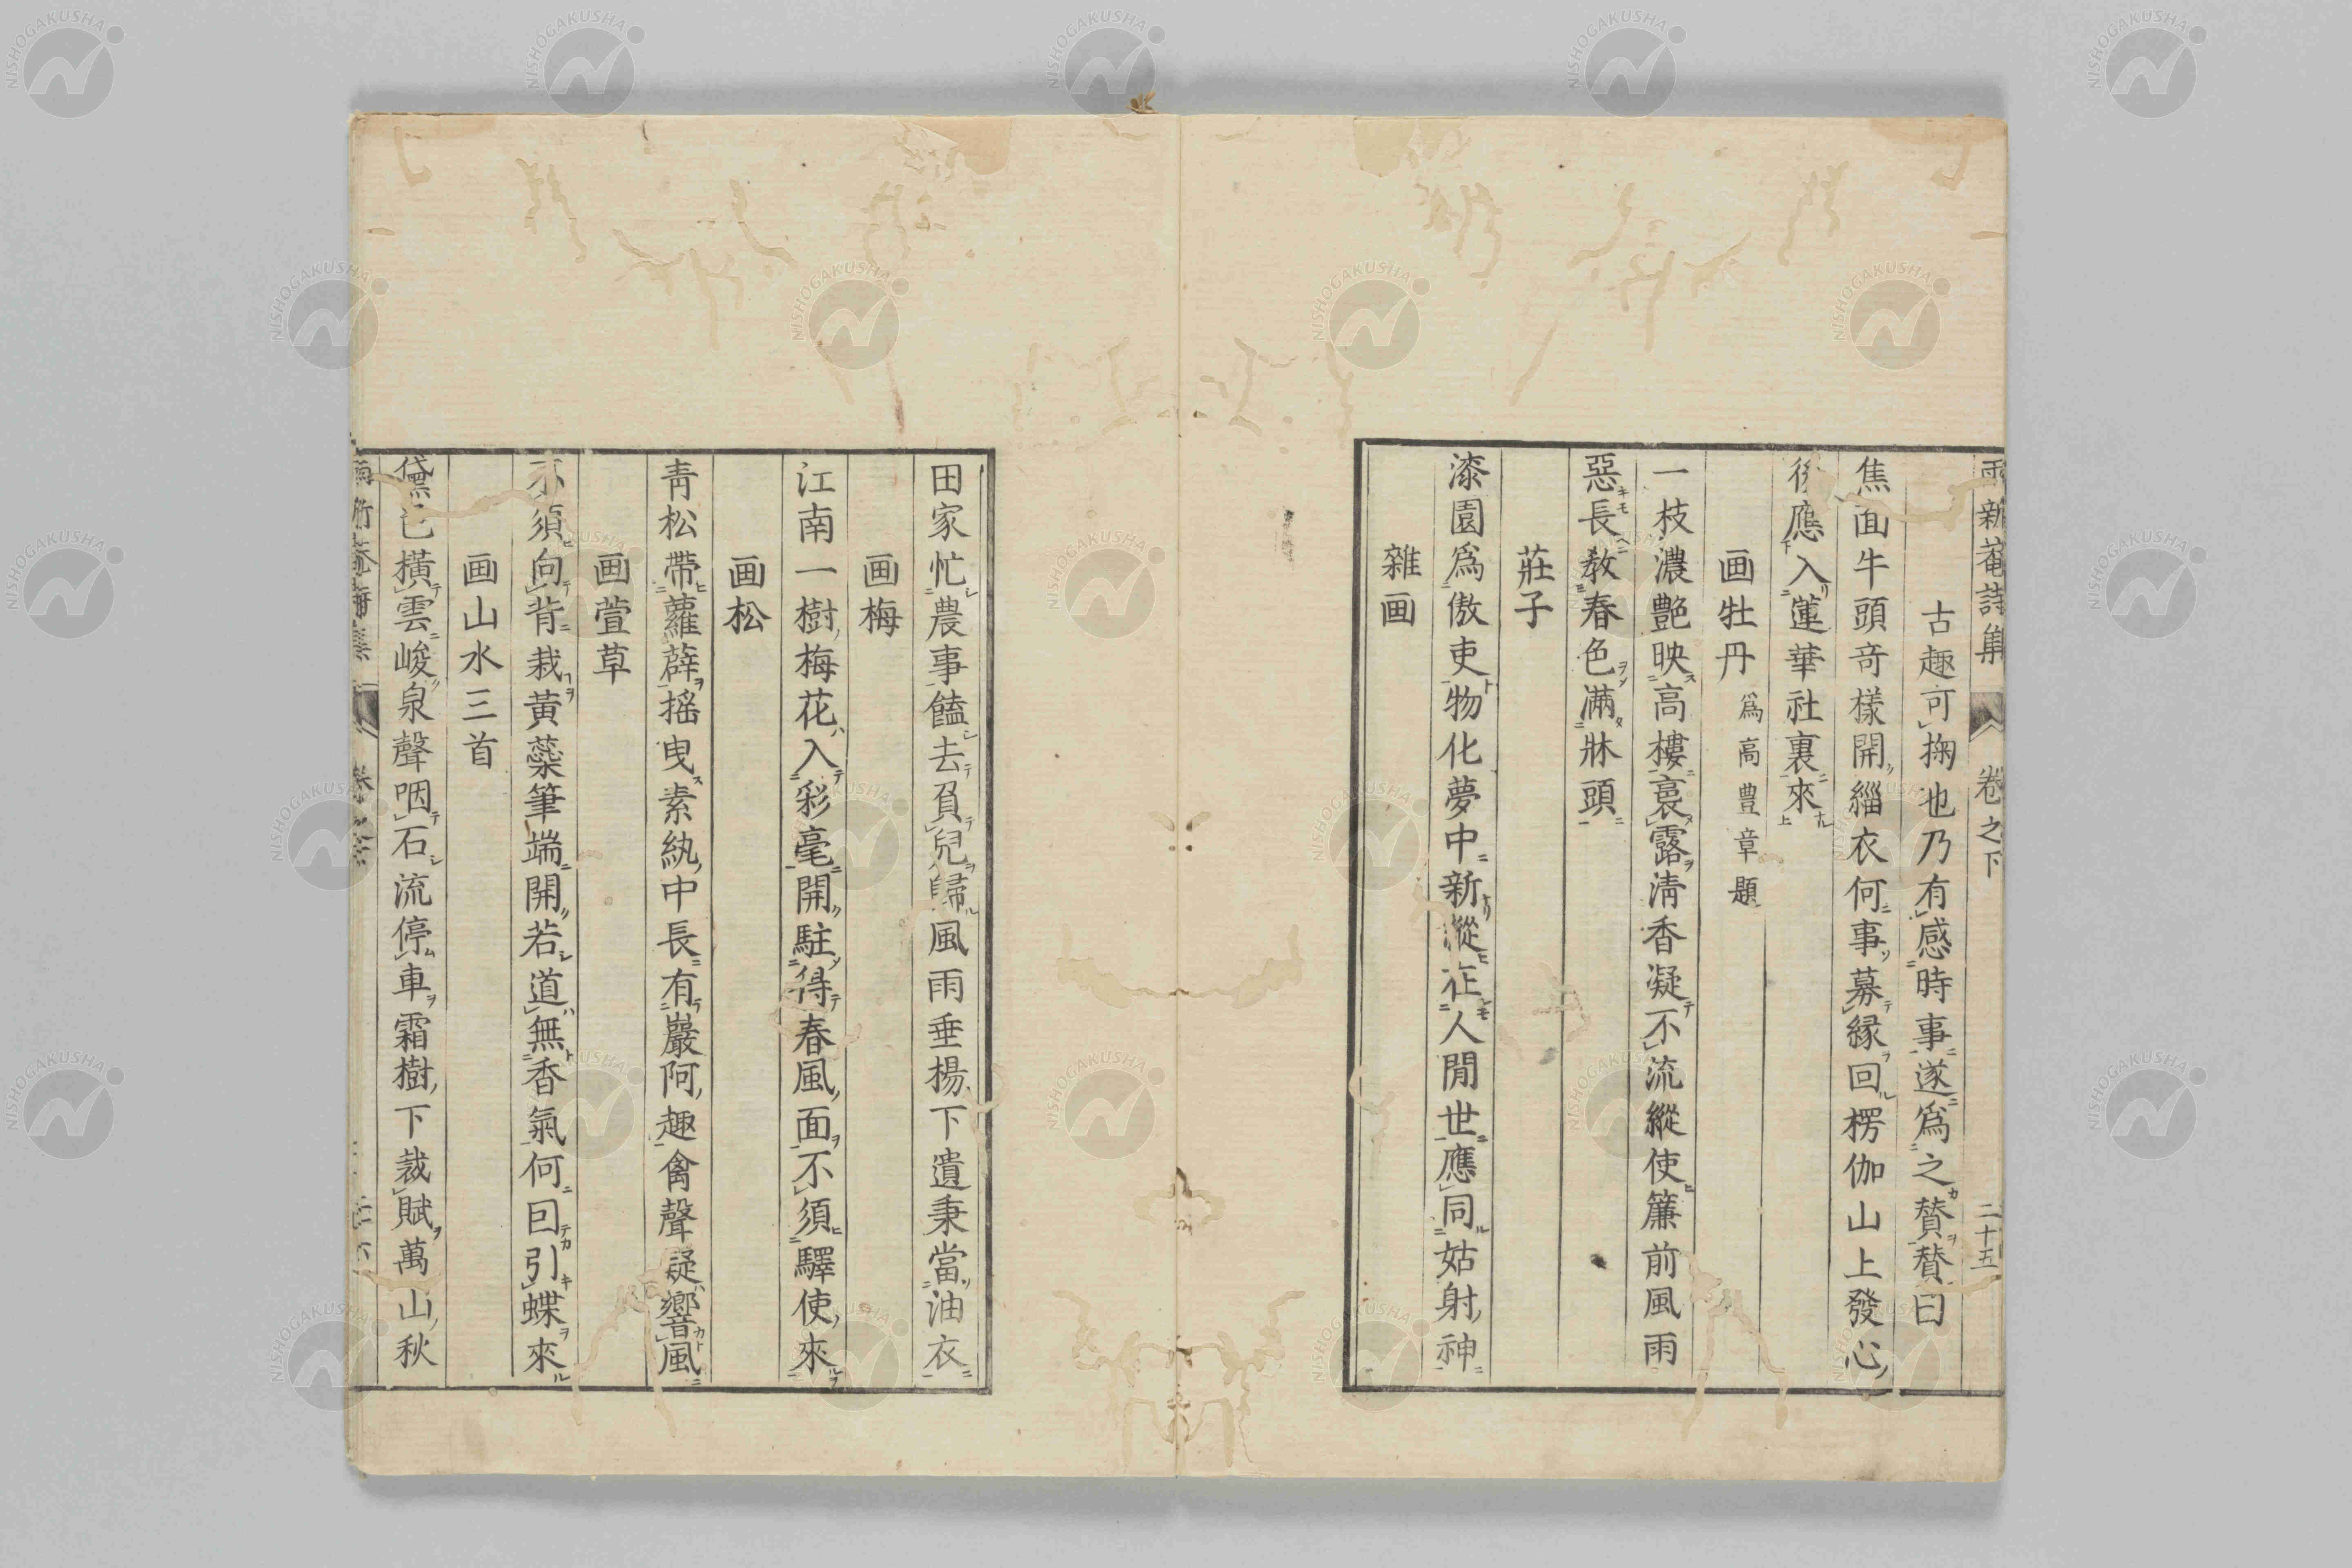 雨新菴詩集 卷之下 二十五
古趣可掬也乃有感時事遂爲之賛賛曰
焦面牛頭奇樣開緇衣何事募緣回楞伽山上發心
後應入蓮華社裏來
画牡丹 爲高豊章題
一枝濃艶映高樓裛露淸香凝不流縱使簾前風雨
惡長教春色滿牀頭
莊子
漆園爲傲吏物化夢中新縱在人閒世應同姑射神
雜画
田家忙農事饁去負兒歸風雨垂楊下遺秉當油衣
画梅
江南一樹梅花入彩毫開駐得春風面不須驛使來
画松
靑松帶蘿薜搖曳素紈中長有巖阿趣禽聲疑響風
画萱草
不須向背栽黃蘂筆端開若道無香氣何囙引蝶來
画山水三首
黛色橫雲峻泉聲咽石流停車霜樹下裁賦萬山秋